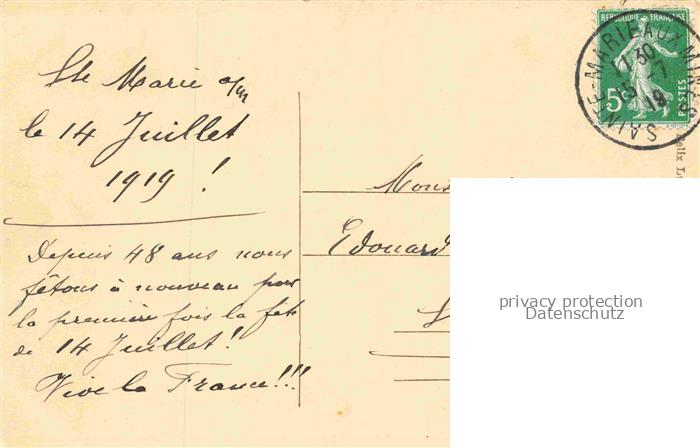 Ste Marie a/m
le 14 Juillet
1919 !
Depuis 48 ans nous
fêtons à nouveau pour
la première fois la fête
de 14 Juillet!
Vive la France!!!
Edouard
REPUBLIQUE FRANÇAISE
5c
POSTES
SAINTE-MARIE AUX MINES
11 30
15 -7
19
privacy protection
Datenschutz